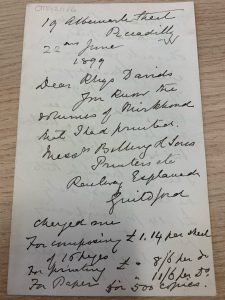 19 Albemarle Street
Piccadilly
W
22 June
1899
Dear Rhys Davids
You know the
volumes of Mirkhond
that I had printed.
Messrs Billing & Sons
Printers etc
Railway Esplanade
Guildford
charged me
For composing £1.14 per sheet
of 16 pages
For printing £ 8/6 per do
For Paper 11/6 per do
for 500 copies.